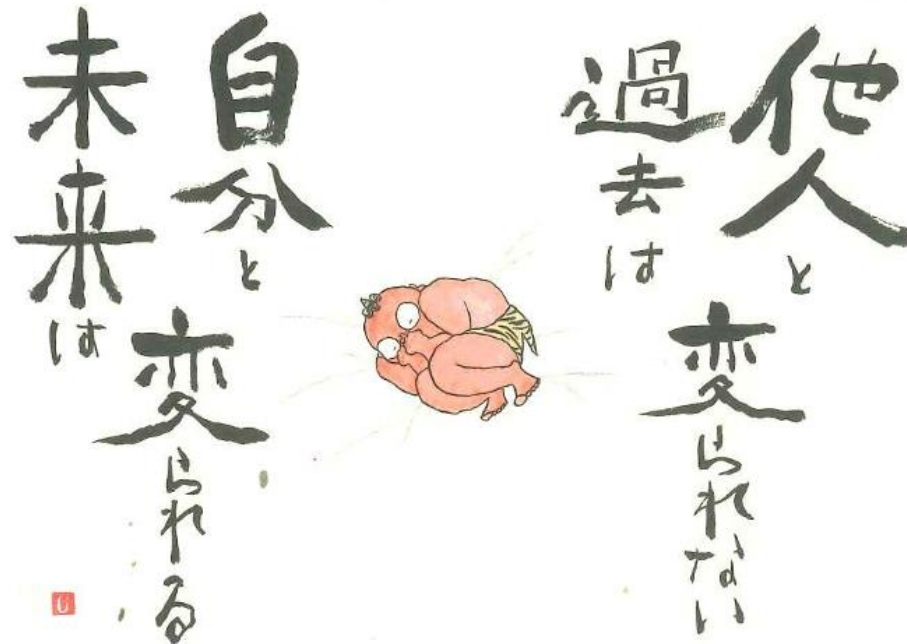 他人と
過去は
変られない
自分と
未来は
変られる
し